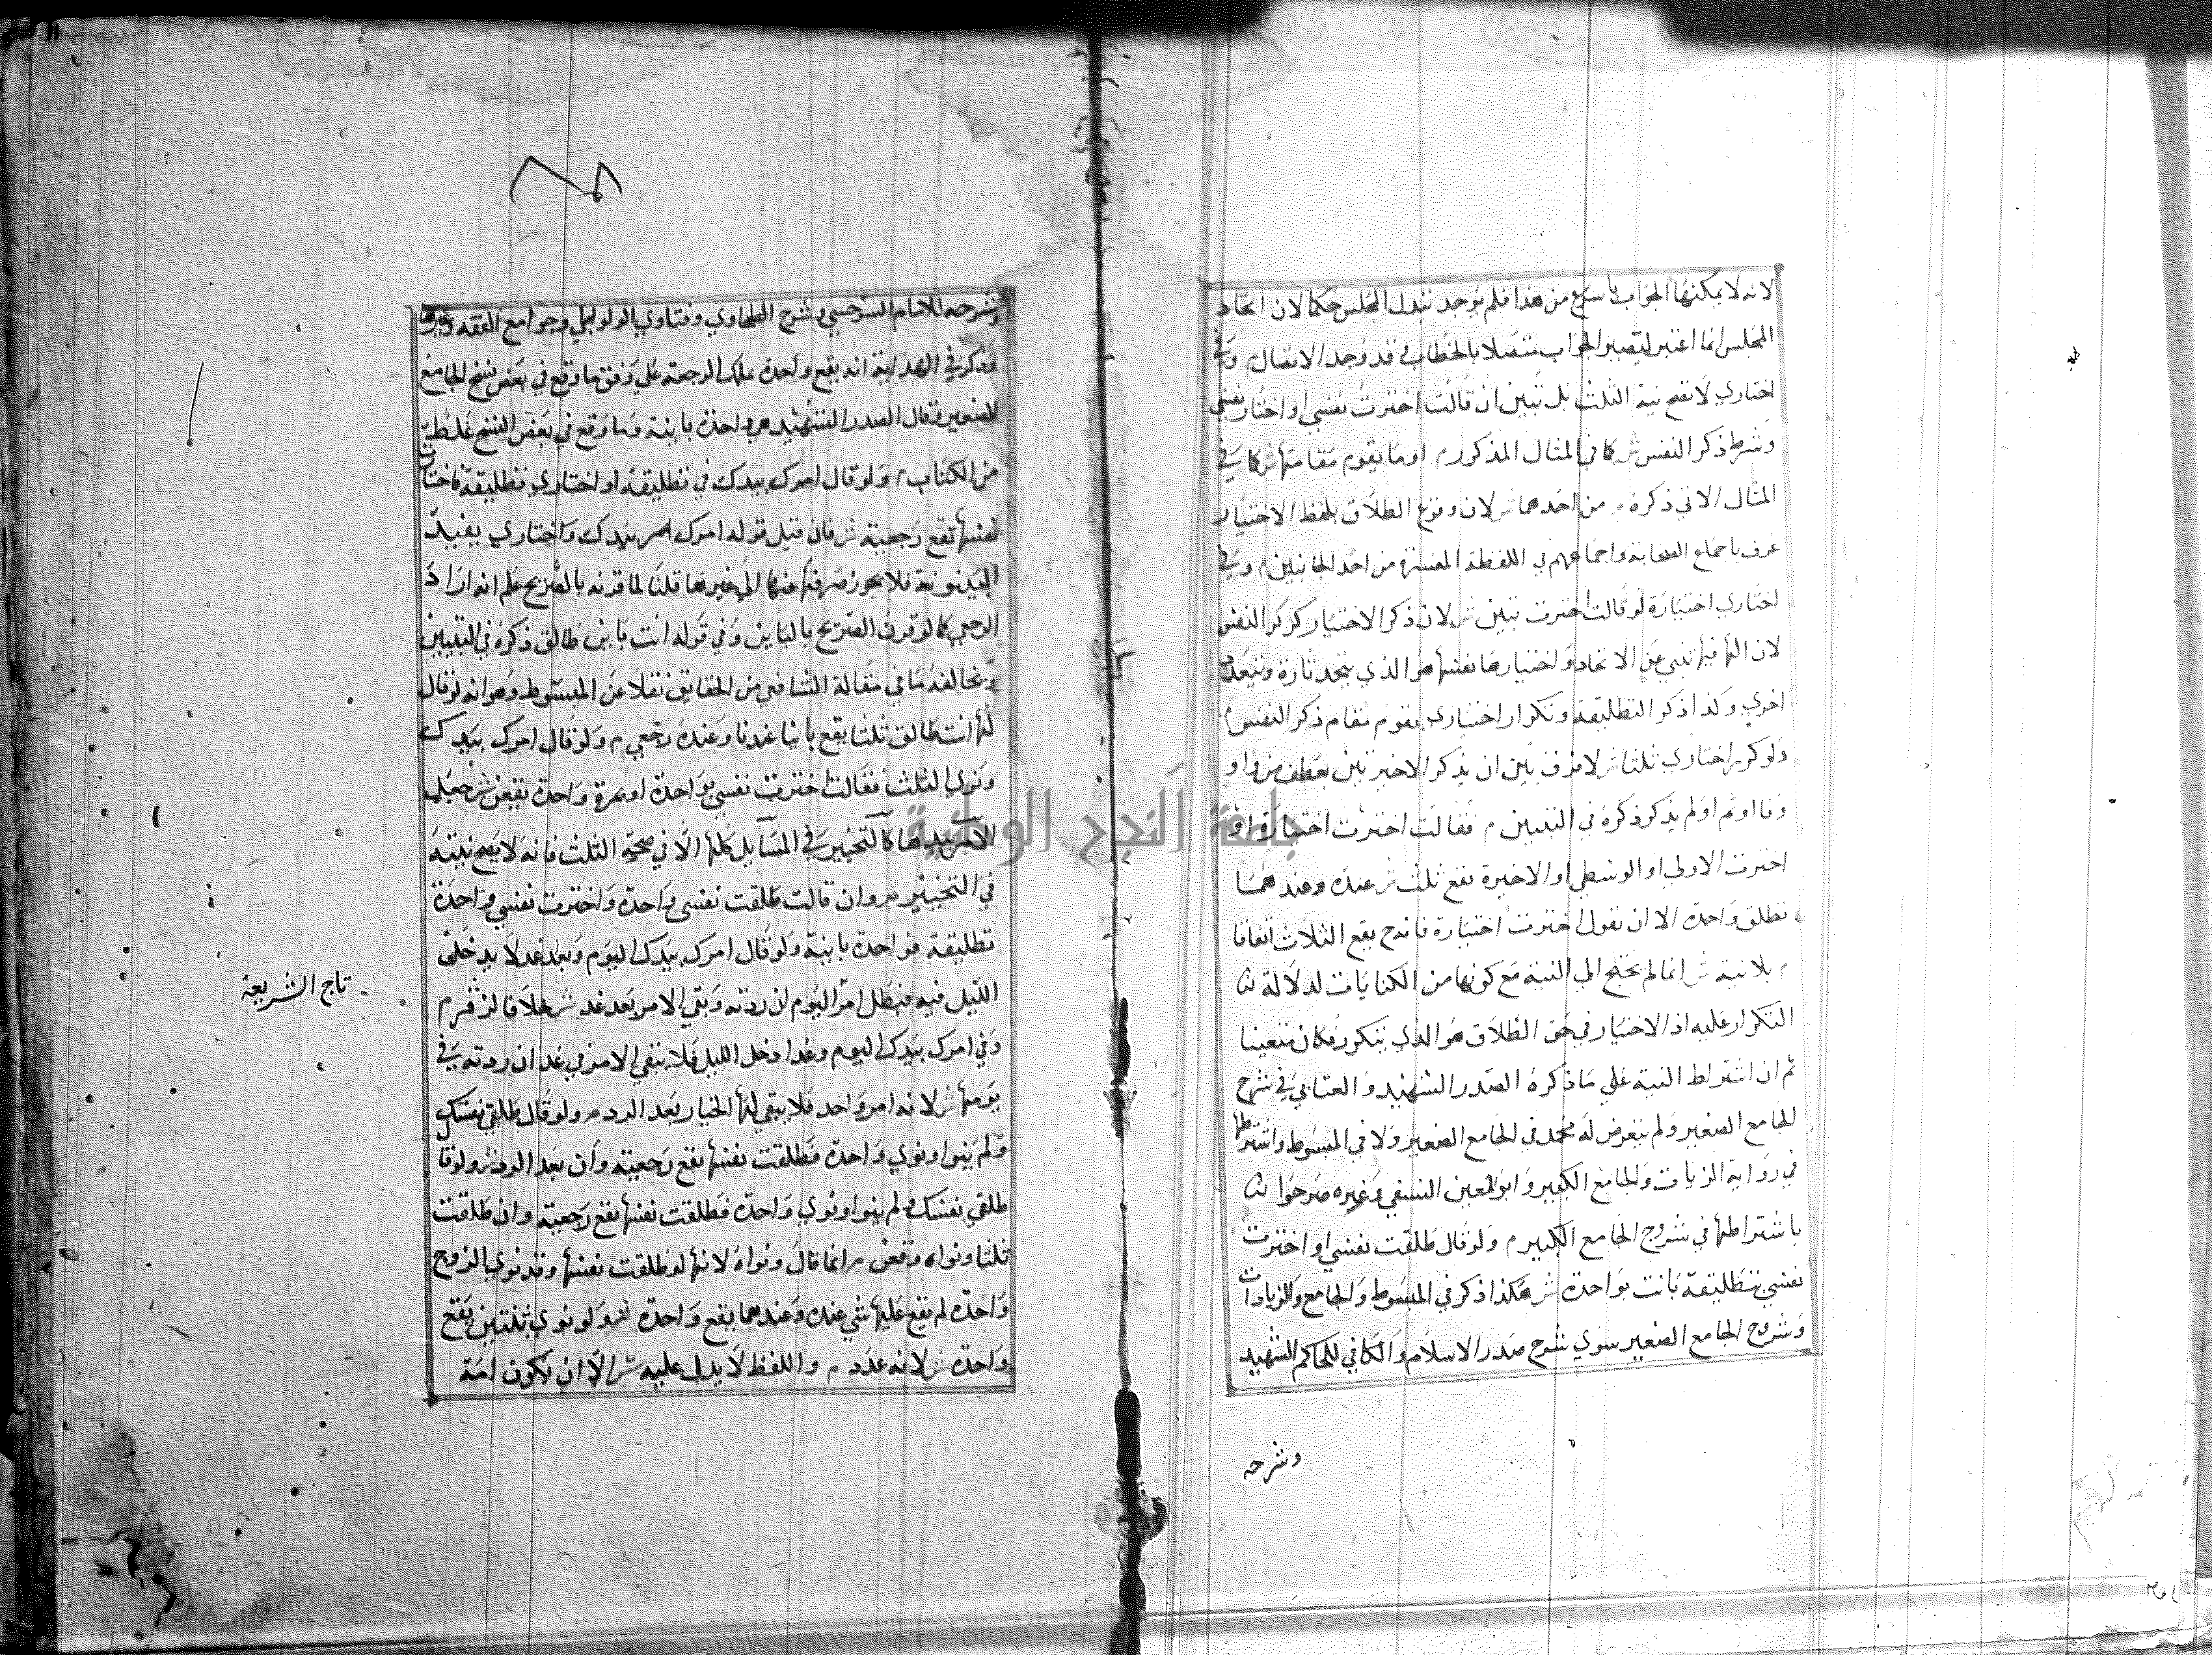 لانه لا يمكنها الجواب باسرع من هذا فلم يوجد تبدل المجلس حكما لان اتحاد
المجلس انما اعتبر ليصير الجواب متصلا بالخطاب و قد وجد الاتصال م وفي
اختاري لا تصح نية الثلث بل تبين ان قالت اخترت نفسي او اختار نفسي
وشرط ذكر النفس ش كما في المثال المذكور م او ما يقوم مقامها ش كما في
المثال الاتي ذكره م من احدهما ش لان وقوع الطلاق بلفظ الاختيار
عرف باجماع الصحابة واجماعهم في اللفظة المفسرة من احد الجانبين م وفي
اختاري اختيارة لو قالت اخترت تبين ش لان ذكر الاختيار كذكر النفس
لان الهاء فيها تنبي عن الاتحاد واختيارها نفسها هو الذي يتحد تارة ويتعدد
اخري وكذا ذكر التطليقة وتكرار اختياري يقوم مقام ذكر النفس م
ولو كرر اختاري ثلثا ش لا فرق بين ان يذكر الاخيرتين بعطف من واو
وفا او ثم او لم يذكر ذكره في التبيين م فقالت اخترت اختيارة او
اخترت الاولي او الوسطي او الاخيرة تقع ثلث ش عنده وعندهما
تطلق واحدة الا ان تقول اخترت اختيارة فانه ح يقع الثلاث اتفاقا
م بلا نية ش انما لم يحتج الي النية مع كونها من الكنايات لدلالة
التكرار عليه اذ الاختيار في حق الطلاق هو الذي يتكرر فكان متعينا
ثم ان اشتراط النية علي ما ذكره الصدر الشهيد و العتابي في شرح
الجامع الصغير ولم يتعرض له محمد في الجامع الصغير ولا في المبسوط واشترطها
في رواية الزيات والجامع الكبير وابو المعين النسفي وغيره صرحوا
باشتراطها في شروح الجامع الكبير م ولو قال طلقت نفسي او اخترت
نفسي بتطليقة بانت بواحدة ش هكذا ذكر في المبسوط والجامع والزيادات
وشروح الجامع الصغير سوي شرح صدر الاسلام والكافي للحاكم الشهيد
وشرحه
وشرحه للامام السرخسي وشرح الطحاوي وفتاوي الولوالجي وجوامع الفقه وغيرها
وذكر في الهداية انه يقع واحدة يملك الرجعة علي وفق ما وقع في بعض نسخ الجامع
الصغير وقال الصدر الشهيد هو واحدة باينة وما وقع في بعض النسخ غلط
من الكتاب م ولو قال امرك بيدك في تطليقة او اختاري تطليقة فاختارت
نفسها تقع رجعية ش فان قيل قوله امرك بيدك واختاري يفيد
البينونة فلا يجوز صرفها عنها الي غيرها قلنا لما قرنه بالصريح علم انه اراد
الرجعي كما لو قرن الصريح بالباين وفي قوله انت باين طالق ذكره في التبيين
ويخالفه ما في مقالة الشافعي من الحقايق نقلا عن المبسوط وهو انه لو قال
لها انت طالق ثلثا يقع باينا عندنا وعنده رجعي م ولو قال امرك بيدك
ونوي الثلث فقالت اخترت نفسي بواحدة او بمرة واحدة يقعن ش جعل
الامر بيدها كالتخيير في المسايل كلها الا في صحة الثلث فانه لا يصح نيته
في التخيير م وان قالت طلقت نفسي واحدة واخترت نفسي واحدة
تطليقة فواحدة باينة ولو قال امرك بيدك اليوم وبعد غد لا يدخل
الليل فيه فبطل امر اليوم ان ردته وبقي الامر بعد غد ش خلافا لزفر م
وفي امرك بيدك اليوم وغدا دخل الليل فلا يبقي الامر في غد ان ردته في
يومها ش لانه امر واحد فلا يبقي لها الخيار بعد الرد م ولو قال طلقي نفسك
ولم ينو او نوي واحدة فطلقت نفسها يقع رجعية وان بعد الرد ش ولو قال
طلقي نفسك ولم ينو او نوي واحدة فطلقت نفسها يقع رجعية وان طلقت
ثلثا ونواه وقعن م انما قال ونواه لانها لو طلقت نفسها وقد نوي الزوج
واحدة لم يقع عليها شي عنده وعندهما يقع واحدة ولو نوي ثنتين يقع
واحدة ش لانه عدد م واللفظ لا يدل عليه ش الا ان يكون امة
تاج الشريعة
جامعة النجاح الوطنية